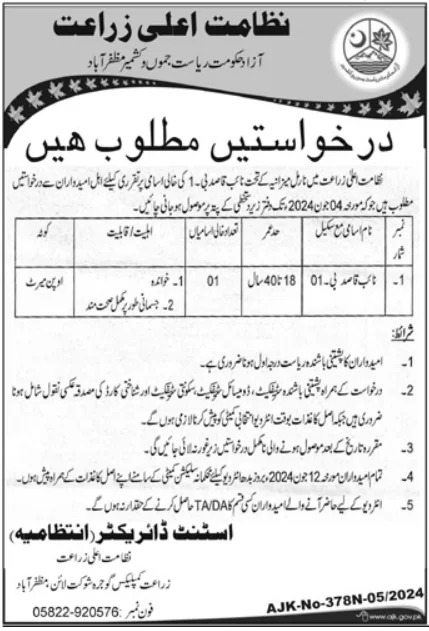 نظامت اعلیٰ زراعت
آزاد حکومت ریاست جموں و کشمیر مظفرآباد
درخواستیں مطلوب ہیں
نظامت اعلیٰ زراعت میں نارمل میزانیہ کے تحت نائب قاصد بی۔1 کی خالی اسامی پر تقرری کیلئے اہل امیدواران سے درخواستیں
مطلوب ہیں جو کہ مورخہ 04 جون 2024ء تک دفتر زیر دستخطی کے پتہ پر موصول ہو جانی چاہئیں۔
نمبر شمار نام اسامی مع سکیل حد عمر تعداد خالی اسامیاں اہلیت/قابلیت کوٹہ
1۔ نائب قاصد بی۔01 18 تا 40 سال 01 1۔ خواندہ اوپن میرٹ
2۔ جسمانی طور پر مکمل صحت مند
شرائط:
1۔ امیدواران کا پشتنی باشندہ ریاست درجہ اول ہونا ضروری ہے۔
2۔ درخواست کے ہمراہ پشتنی باشندہ سرٹیفکیٹ، ڈومیسائل سرٹیفکیٹ، سکونتی سرٹیفکیٹ اور شناختی کارڈ کی مصدقہ عکسی نقول شامل ہونا
ضروری ہیں جبکہ اصل کاغذات بوقت انٹرویو انتخابی کمیٹی کو پیش کرنا لازمی ہوں گے۔
3۔ مقررہ تاریخ کے بعد موصول ہونے والی نامکمل درخواستیں زیر غور نہ لائی جائیں گی۔
4۔ تمام امیدواران مورخہ 12 جون 2024ء بروز بدھ انٹرویو کیلئے محکمانہ سلیکشن کمیٹی کے سامنے اپنے اصل کاغذات کے ہمراہ پیش ہوں۔
5۔ انٹرویو کے لیے حاضر آنے والے امیدواران کسی قسم کا TA/DA حاصل کرنے کے حقدار نہ ہوں گے۔
اسسٹنٹ ڈائریکٹر (انتظامیہ)
نظامت اعلیٰ زراعت
زراعت کمپلیکس گوجرہ شوکت لائن، مظفرآباد
فون نمبر: 05822-920576
AJK-No-378N-05/2024
www.ajk.gov.pk